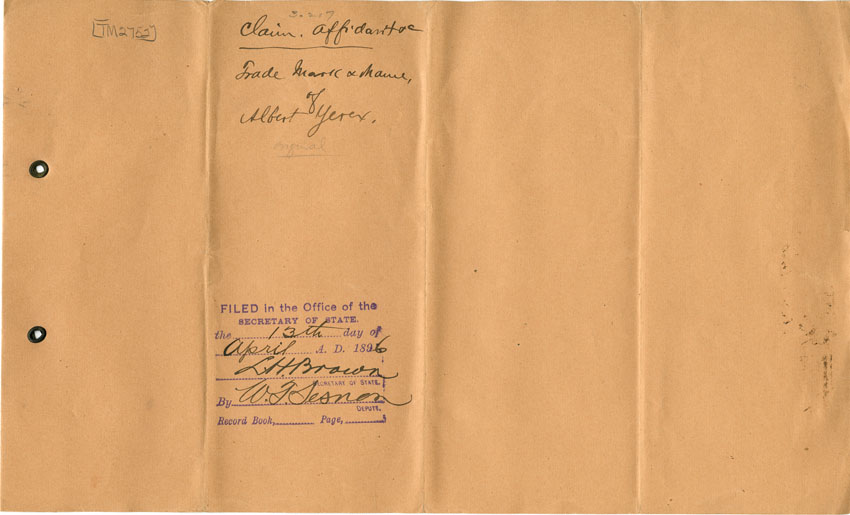 TM2752
3.217
Claim. Affidavit &c
Trade Mark & Name,
of
Albert Yerex.
original
FILED in the Office of the
SECRETARY OF STATE.
the 13th day of
April A. D. 1896
L.H. Brown
SECRETARY OF STATE.
By W. T. Sesnon
DEPUTY.
Record Book, Page,